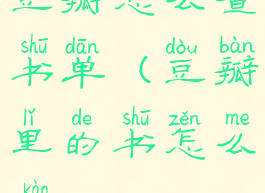 豆瓣怎么查
shū dān dòu bàn
书单（豆瓣
lǐ de shū zěn me
里的书怎么
kàn